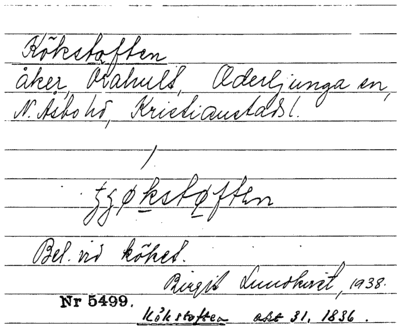 Kökstoften
åker, Krahult, Oderljunga sn,
N. Åsbo hd, Kristianstads l.
/
ʒʒøkstǫften
Bel. vid köket.
Birgit Lundkvist, 1938.
Nr 5499.
Kökstoften akt 31. 1836.